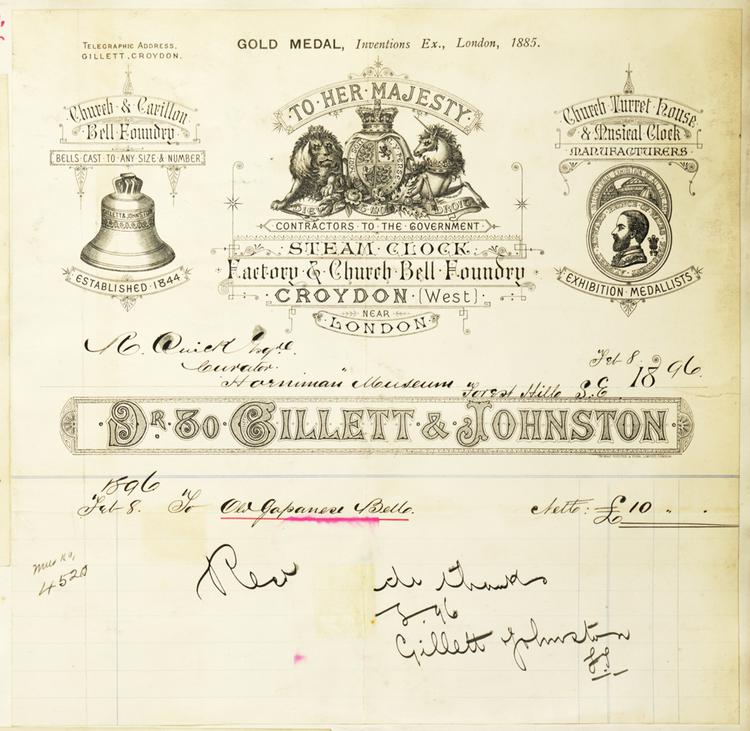 TELEGRAPHIC ADDRESS,
GILLETT, CROYDON.
GOLD MEDAL, Inventions Ex., London, 1885.
Church & Carillon
Bell Foundry
BELLS CAST TO ANY SIZE & NUMBER
GILLETT & JOHNSTON
ESTABLISHED 1844
TO · HER · MAJESTY
DIEU ET MON DROIT
CONTRACTORS TO THE GOVERNMENT
STEAM CLOCK
Factory & Church Bell Foundry
CROYDON (West)
NEAR
LONDON
Church Turret House
& Musical Clock
MANUFACTURERS
EXHIBITION MEDALLISTS
R. Quick Esqre.
Curator
Horniman Museum Forest Hill S.E. Feb 8. 1896.
DR. TO GILLETT & JOHNSTON
1896
Feb 8. To Old Japanese Bell. Nett: £10 " .
Mus No.
4520
Recd
3.96
Gillett Johnston